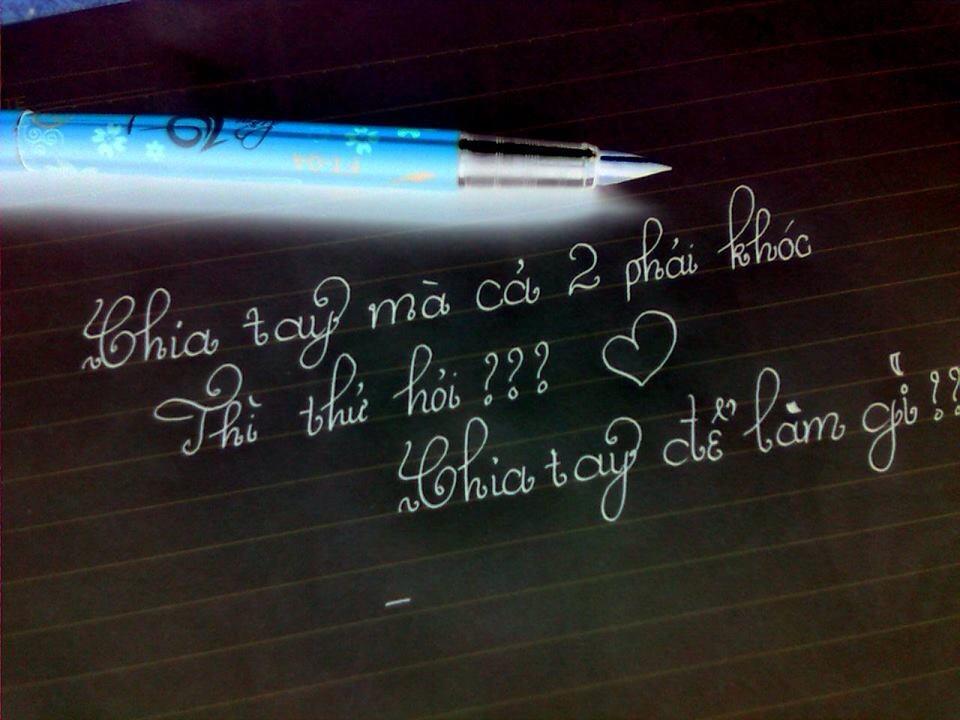 FT-04
Chia tay mà cả 2 phải khóc
Thì thử hỏi ???
Chia tay để làm gì ??